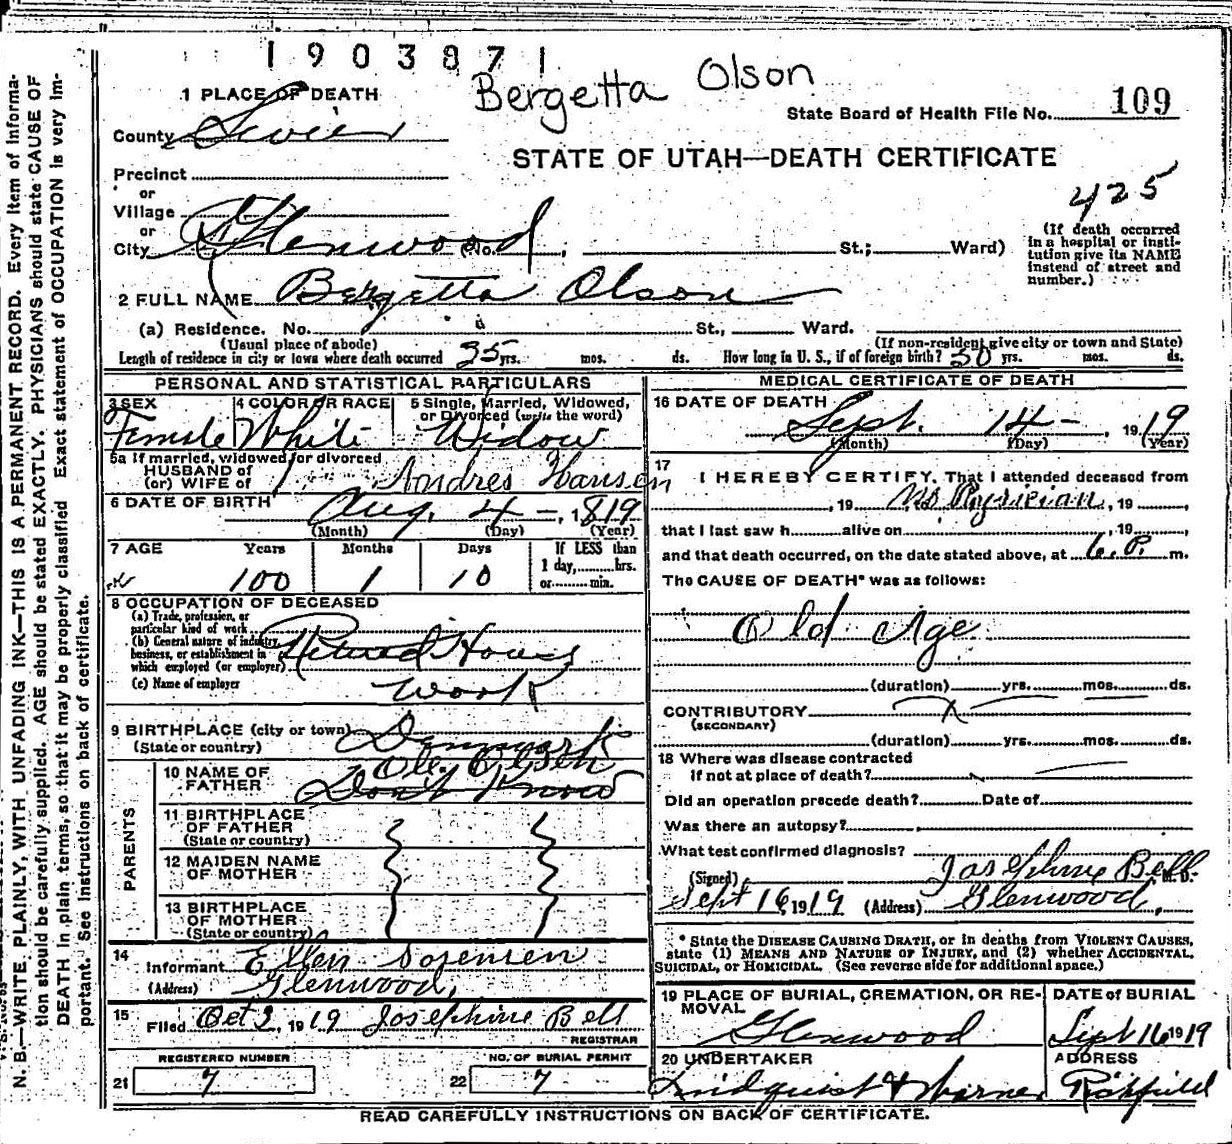 1903871
Bergetta Olson
1 PLACE OF DEATH
State Board of Health File No. 109
County Sevier
STATE OF UTAH—DEATH CERTIFICATE
Precinct
425
or
Village
or
City Glenwood (No. , St.; Ward)
(If death occurred in a hospital or institution give its NAME instead of street and number.)
2 FULL NAME Bergetta Olson
(a) Residence. No. St., Ward.
(Usual place of abode) (If non-resident give city or town and State)
Length of residence in city or town where death occurred 35 yrs. mos. ds. How long in U. S., if of foreign birth? 50 yrs. mos. ds.
PERSONAL AND STATISTICAL PARTICULARS
3 SEX Female
4 COLOR OR RACE White
5 Single, Married, Widowed, or Divorced (write the word) Widow
5a If married, widowed or divorced
HUSBAND of
(or) WIFE of Andres Hansen
6 DATE OF BIRTH Aug. 4 - , 1819
(Month) (Day) (Year)
7 AGE Years Months Days If LESS than
1 day, hrs.
100 1 10 or min.
8 OCCUPATION OF DECEASED
(a) Trade, profession, or
particular kind of work
(b) General nature of industry,
business, or establishment in
which employed (or employer) Retired House
(c) Name of employer Work
9 BIRTHPLACE (city or town) Denmark
(State or country)
PARENTS
10 NAME OF FATHER Ole Olsen
Don't Know
11 BIRTHPLACE
OF FATHER
(State or country)
12 MAIDEN NAME
OF MOTHER
13 BIRTHPLACE
OF MOTHER
(State or country)
14
Informant Ellen Sorensen
(Address) Glenwood,
15
Filed Oct 2, 1919 Josephine Bell
REGISTRAR
REGISTERED NUMBER NO. OF BURIAL PERMIT
21 7 22 7
MEDICAL CERTIFICATE OF DEATH
16 DATE OF DEATH
Sept. 14 - , 1919
(Month) (Day) (Year)
17 I HEREBY CERTIFY, That I attended deceased from
, 19 No Physician, 19 ,
that I last saw h alive on , 19
and that death occurred, on the date stated above, at 6 P. m.
The CAUSE OF DEATH* was as follows:
Old Age
(duration) yrs. mos. ds.
CONTRIBUTORY
(SECONDARY)
(duration) yrs. mos. ds.
18 Where was disease contracted
if not at place of death?
Did an operation precede death? Date of
Was there an autopsy?
What test confirmed diagnosis?
(Signed) Josephine Bell M. D.
Sept 16, 1919 (Address) Glenwood,
* State the DISEASE CAUSING DEATH, or in deaths from VIOLENT CAUSES,
state (1) MEANS AND NATURE OF INJURY, and (2) whether ACCIDENTAL,
SUICIDAL, or HOMICIDAL. (See reverse side for additional space.)
19 PLACE OF BURIAL, CREMATION, OR REMOVAL DATE of BURIAL
Glenwood Sept 16 1919
20 UNDERTAKER ADDRESS
Lindquist & Warner Richfield
READ CAREFULLY INSTRUCTIONS ON BACK OF CERTIFICATE.
N. B.—WRITE PLAINLY, WITH UNFADING INK—THIS IS A PERMANENT RECORD. Every item of informa-
tion should be carefully supplied. AGE should be stated EXACTLY. PHYSICIANS should state CAUSE OF
DEATH in plain terms, so that it may be properly classified Exact statement of OCCUPATION is very im-
portant. See instructions on back of certificate.